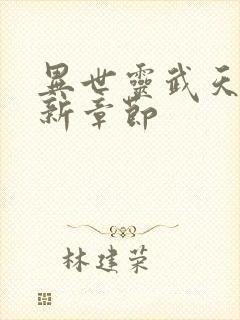 異世靈武天
新章節
林建荣